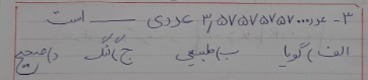 ۳- عدد ...۳,۵۷۵۷۵۷۵۷ عددی ــــــ است
الف) گویا ب) طبیعی ج) گنگ د) صحیح